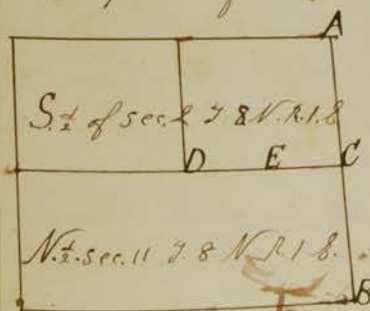 A
S. ½ of sec. 2 T 8 N. R. 1. E
D E C
N. ½. sec. 11 T. 8 N R 1 E.
B